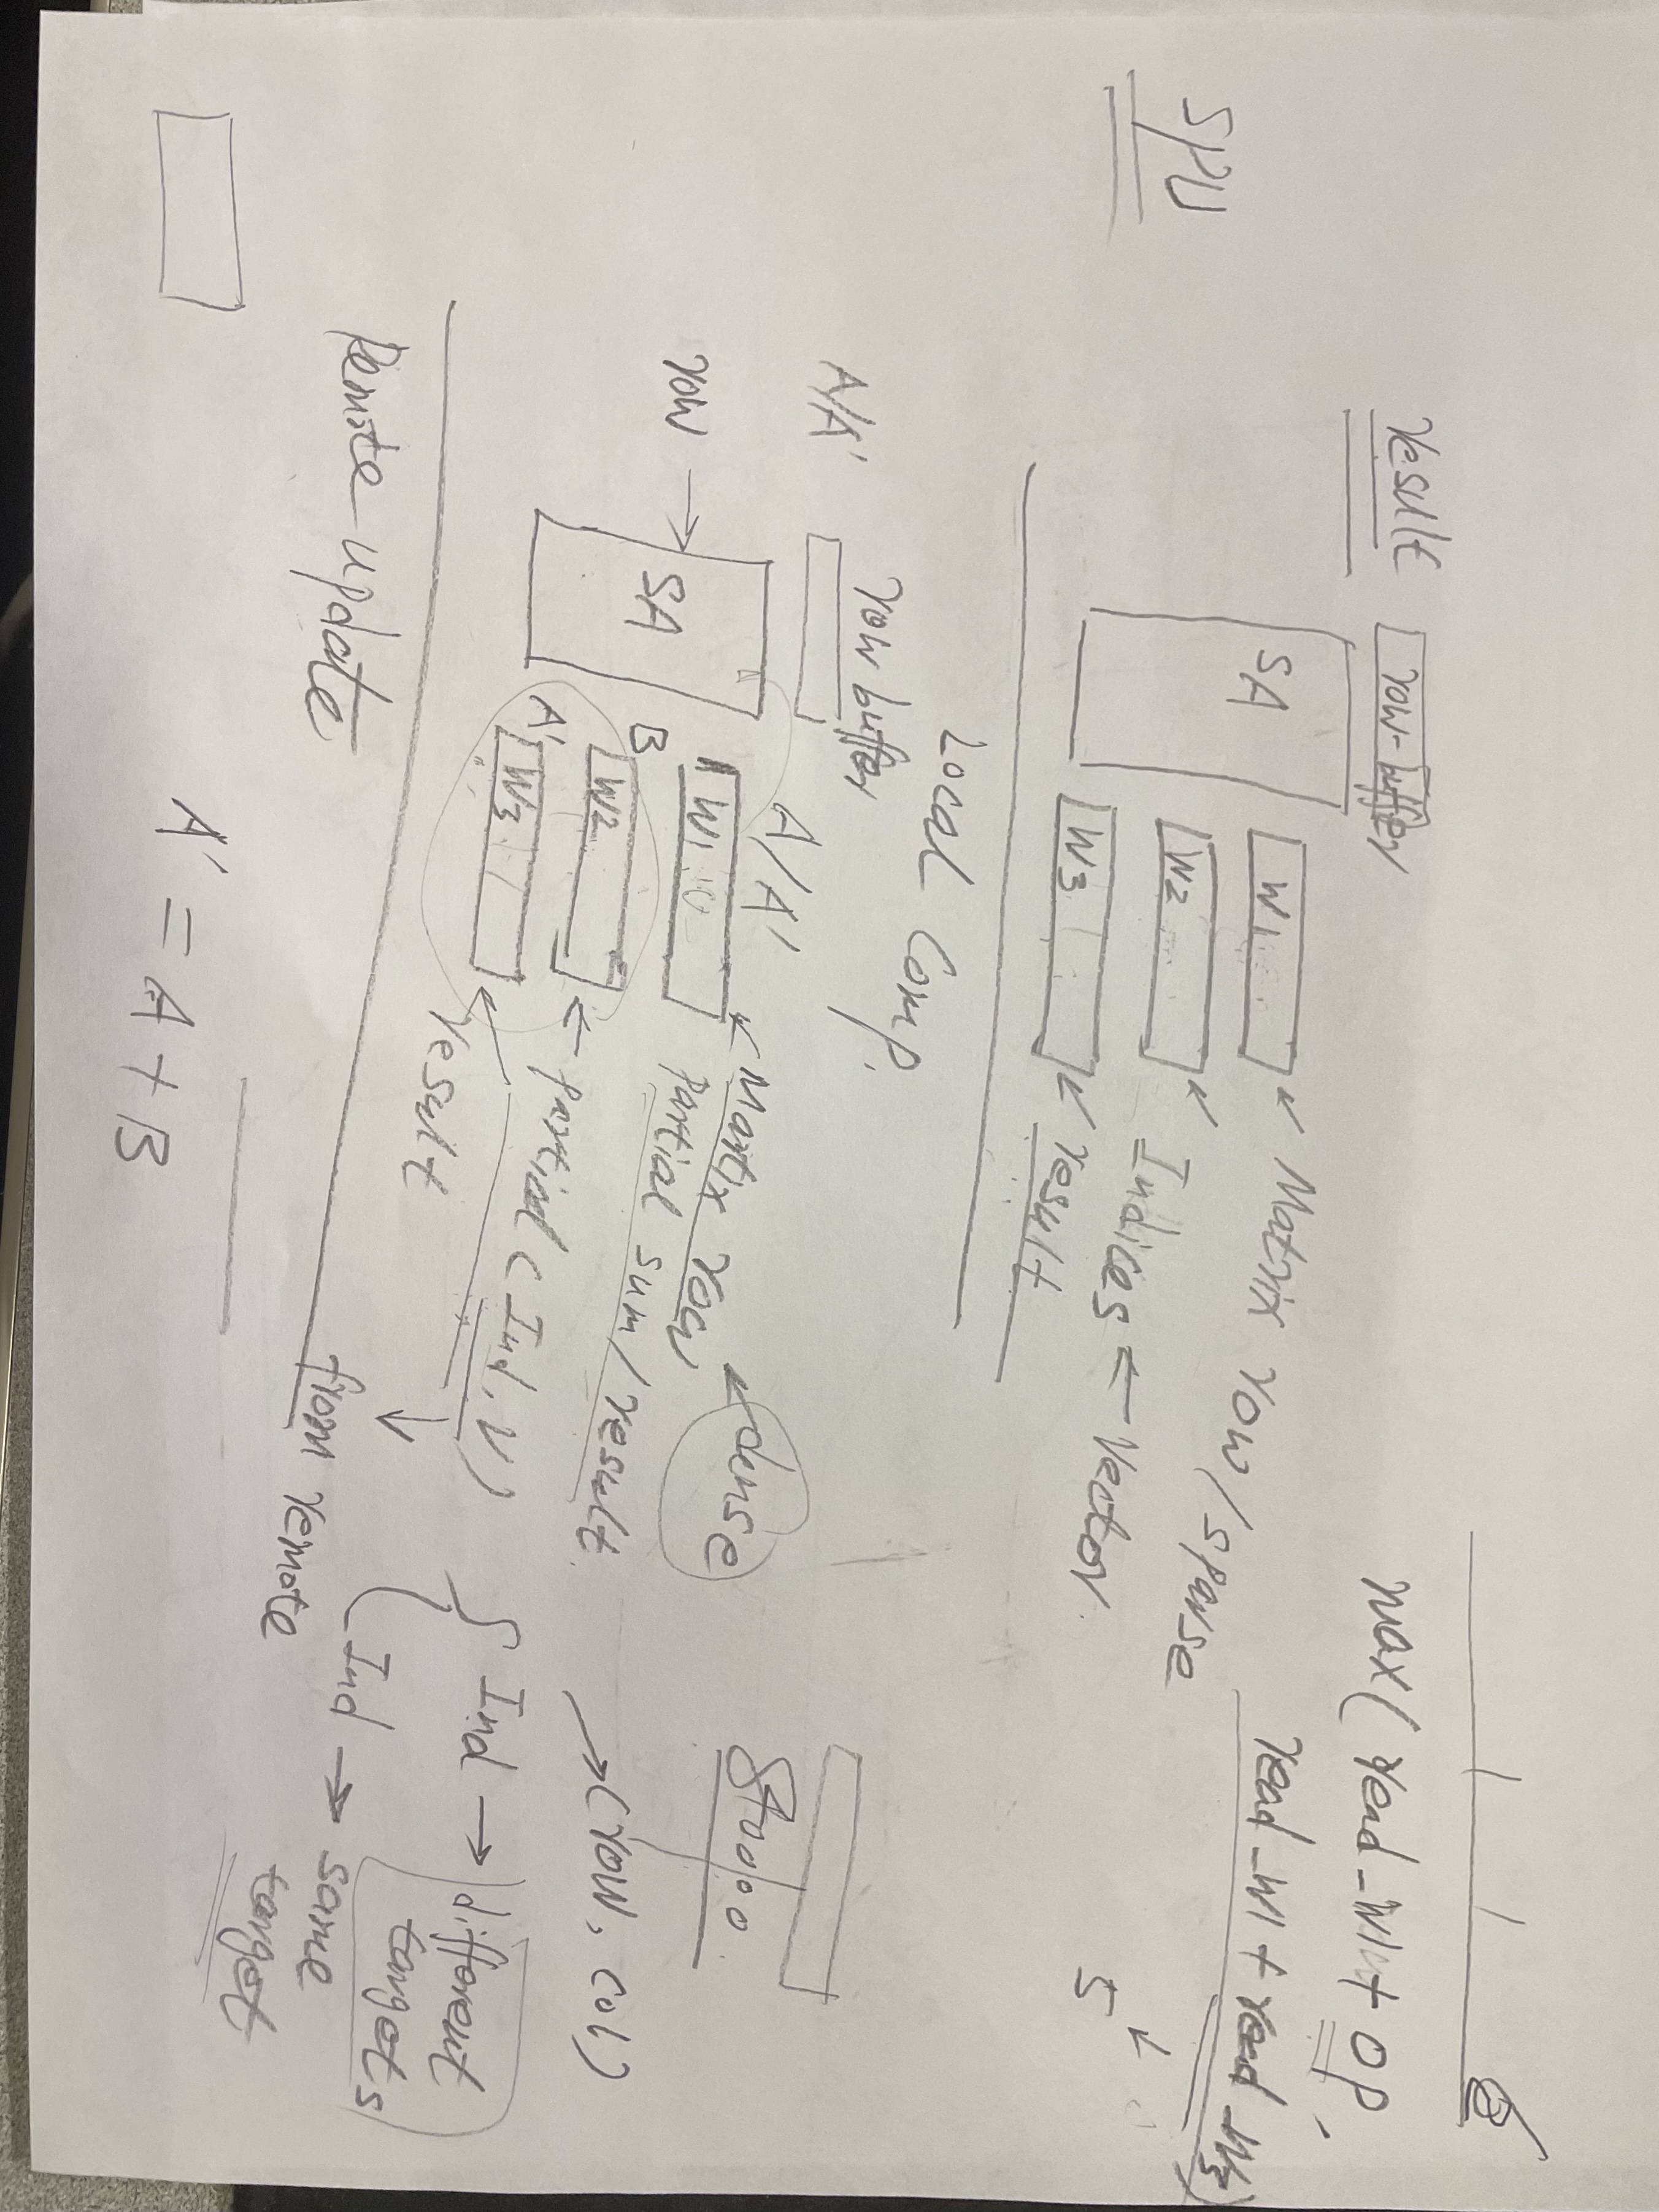 SPU
result
row-buffer
SA
W1
Matrix row/sparse
W2
Indices ← Vector
W3
result
max(read-W1+OP,
read-W1+read-W3)
5
Local Comp.
row buffer
A/A'
row →
SA
A/A'
W1
Matrix row
← dense
partial sum/result
B
W2
← partial (Ind, V)
A'
W3
result
→ (row, col)
Ind → different
targets
Ind → same
target
from remote
Remote-update
A' = A + B